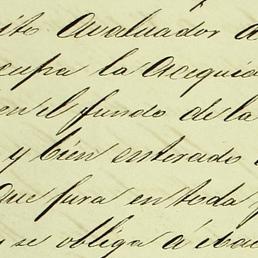 ito Avaluador a
cupa la Acequia
en el fundo de la
y bien enterado
que jura en toda f
se obliga á hac